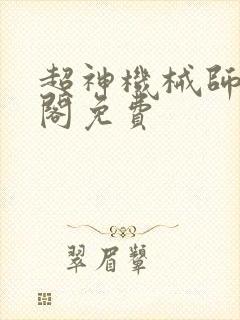 超神機械師
閣免費
翠眉顰